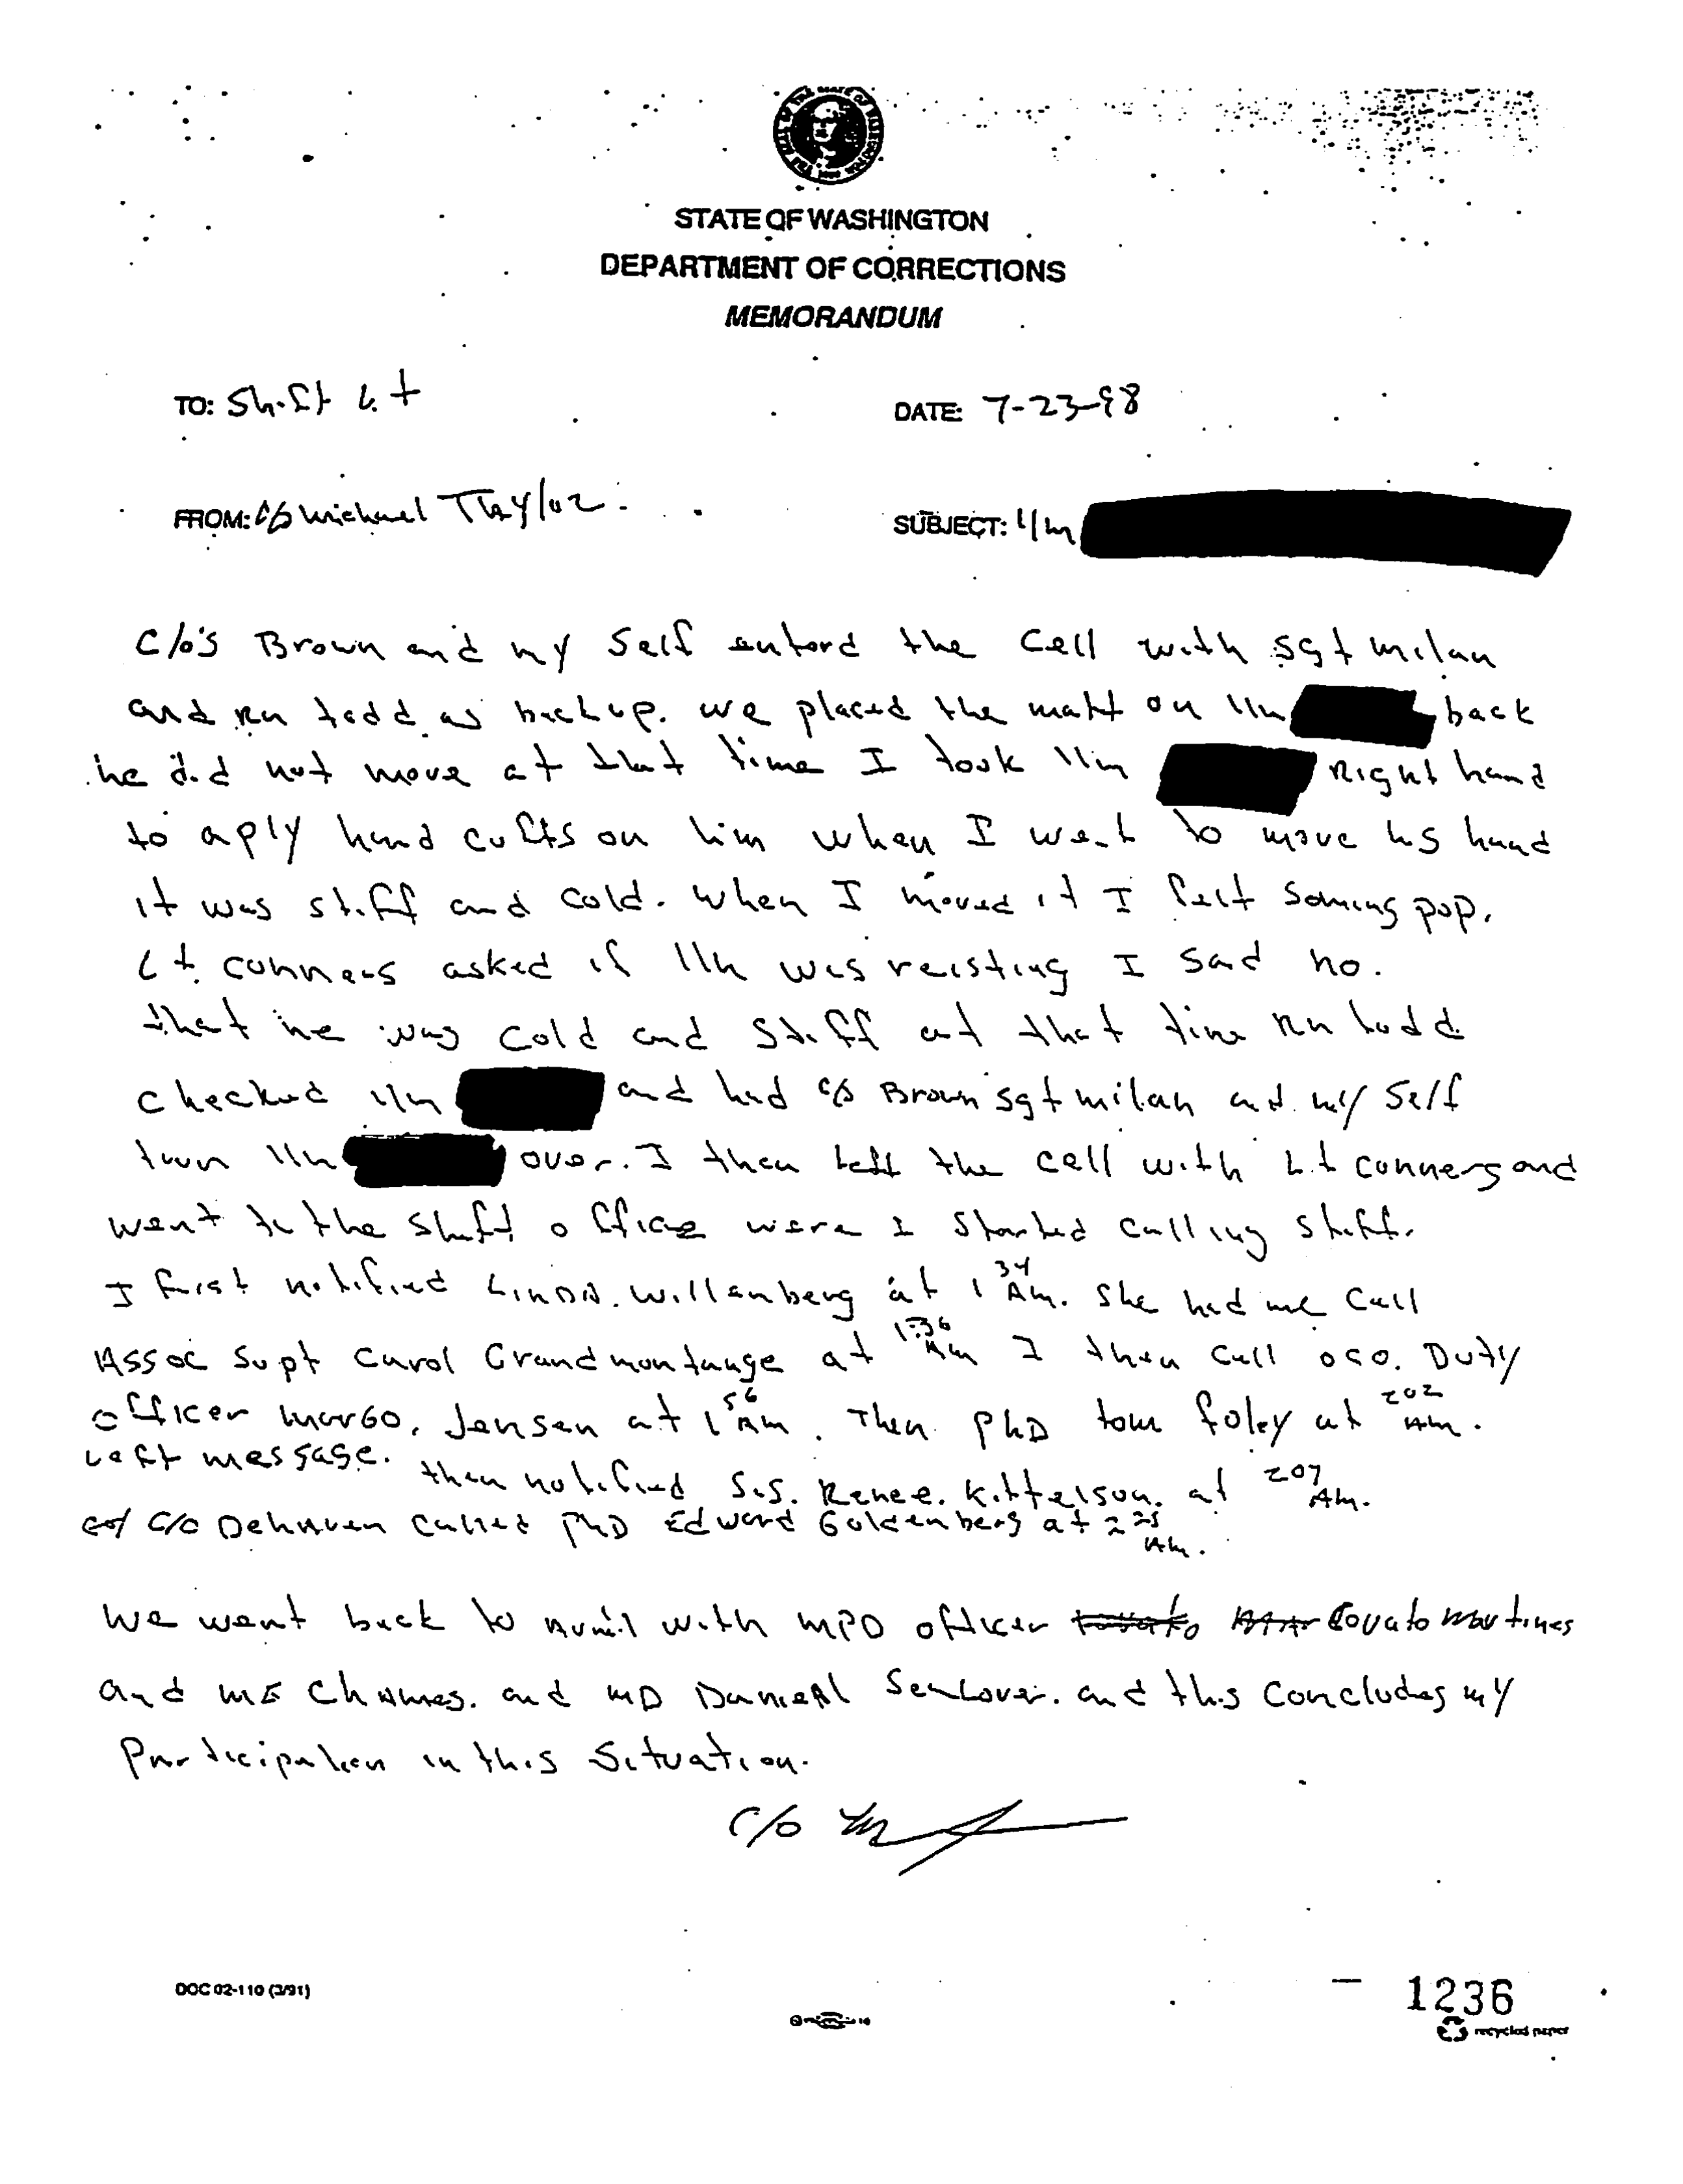 STATE OF WASHINGTON
DEPARTMENT OF CORRECTIONS
MEMORANDUM
TO: Shift Lt
DATE: 7-23-98
FROM: C/O Michael Taylor
SUBJECT: I/m
C/o's Brown and my Self enterd the Cell with sgt milan
and RN todd as backup. we placed the matt on I/m back
he did not move at that time I took I/m Right hand
to aply hand cuffs on him when I went to move his hand
it was stiff and cold. when I moved it I felt soming pop.
Lt. conners asked if I/m was reisting I said no.
that he was cold and stiff at that time RN todd
checked I/m and had c/o Brown sgt milan and my Self
turn I/m over. I then left the cell with Lt conners and
went to the shift office were I started calling staff.
I first notified LINDA. Willanberg at 1 34 Am. she had me call
Assoc Supt Carol Grandmontange at 1:36 Am I then call OCO. Duty
officer Margo. Jensen at 1 56 Am. Then PhD tom foley at 202 Am.
Left message. then notified S.S. Renee. Kittelson. at 207 AM.
C/O DeHaven called PhD Edward Goldenberg at 2 25 Am.
We went back to with MPD officer Lovato Martines
and ME Chames. and MD Daniel Sealover. and this Concludes my
Participation in this Situation.
C/O
DOC 02-110 (3/91)
1236
recycled paper